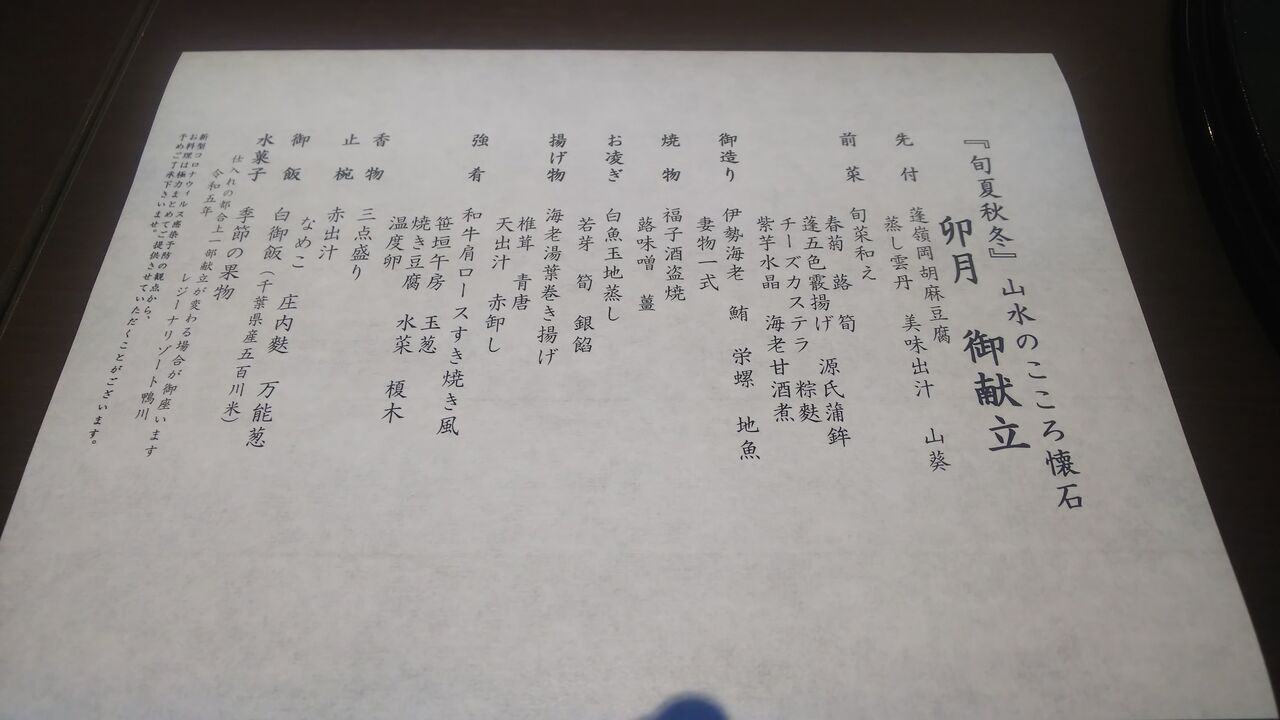 『旬夏秋冬』 山水のこころ懐石
卯月 御献立
先付
蓬嶺岡胡麻豆腐
蒸し雲丹 美味出汁 山葵
前菜
旬菜和え
春菊 蕗 筍 源氏蒲鉾
蓬五色霰揚げ 粽麩
チーズカステラ
紫芋水晶 海老甘酒煮
御造り
伊勢海老 鮪 栄螺 地魚
妻物一式
焼物
福子酒盗焼
蕗味噌 薑
お凌ぎ
白魚玉地蒸し
若芽 筍 銀餡
揚げ物
海老湯葉巻き揚げ
椎茸 青唐
天出汁 赤卸し
強肴
和牛肩ロースすき焼き風
笹垣午房 玉葱
焼き豆腐 水菜 榎木
温度卵
香物
三点盛り
止椀
赤出汁
なめこ 庄内麩 万能葱
御飯
白御飯(千葉県産五百川米)
水菓子
季節の果物
仕入れの都合上一部献立が変わる場合が御座います
令和五年 レジーナリゾート鴨川
新型コロナウィルス感染予防の観点から、
お料理は極力まとめてご提供させていただくことがございます。
予めご了承下さいませ。